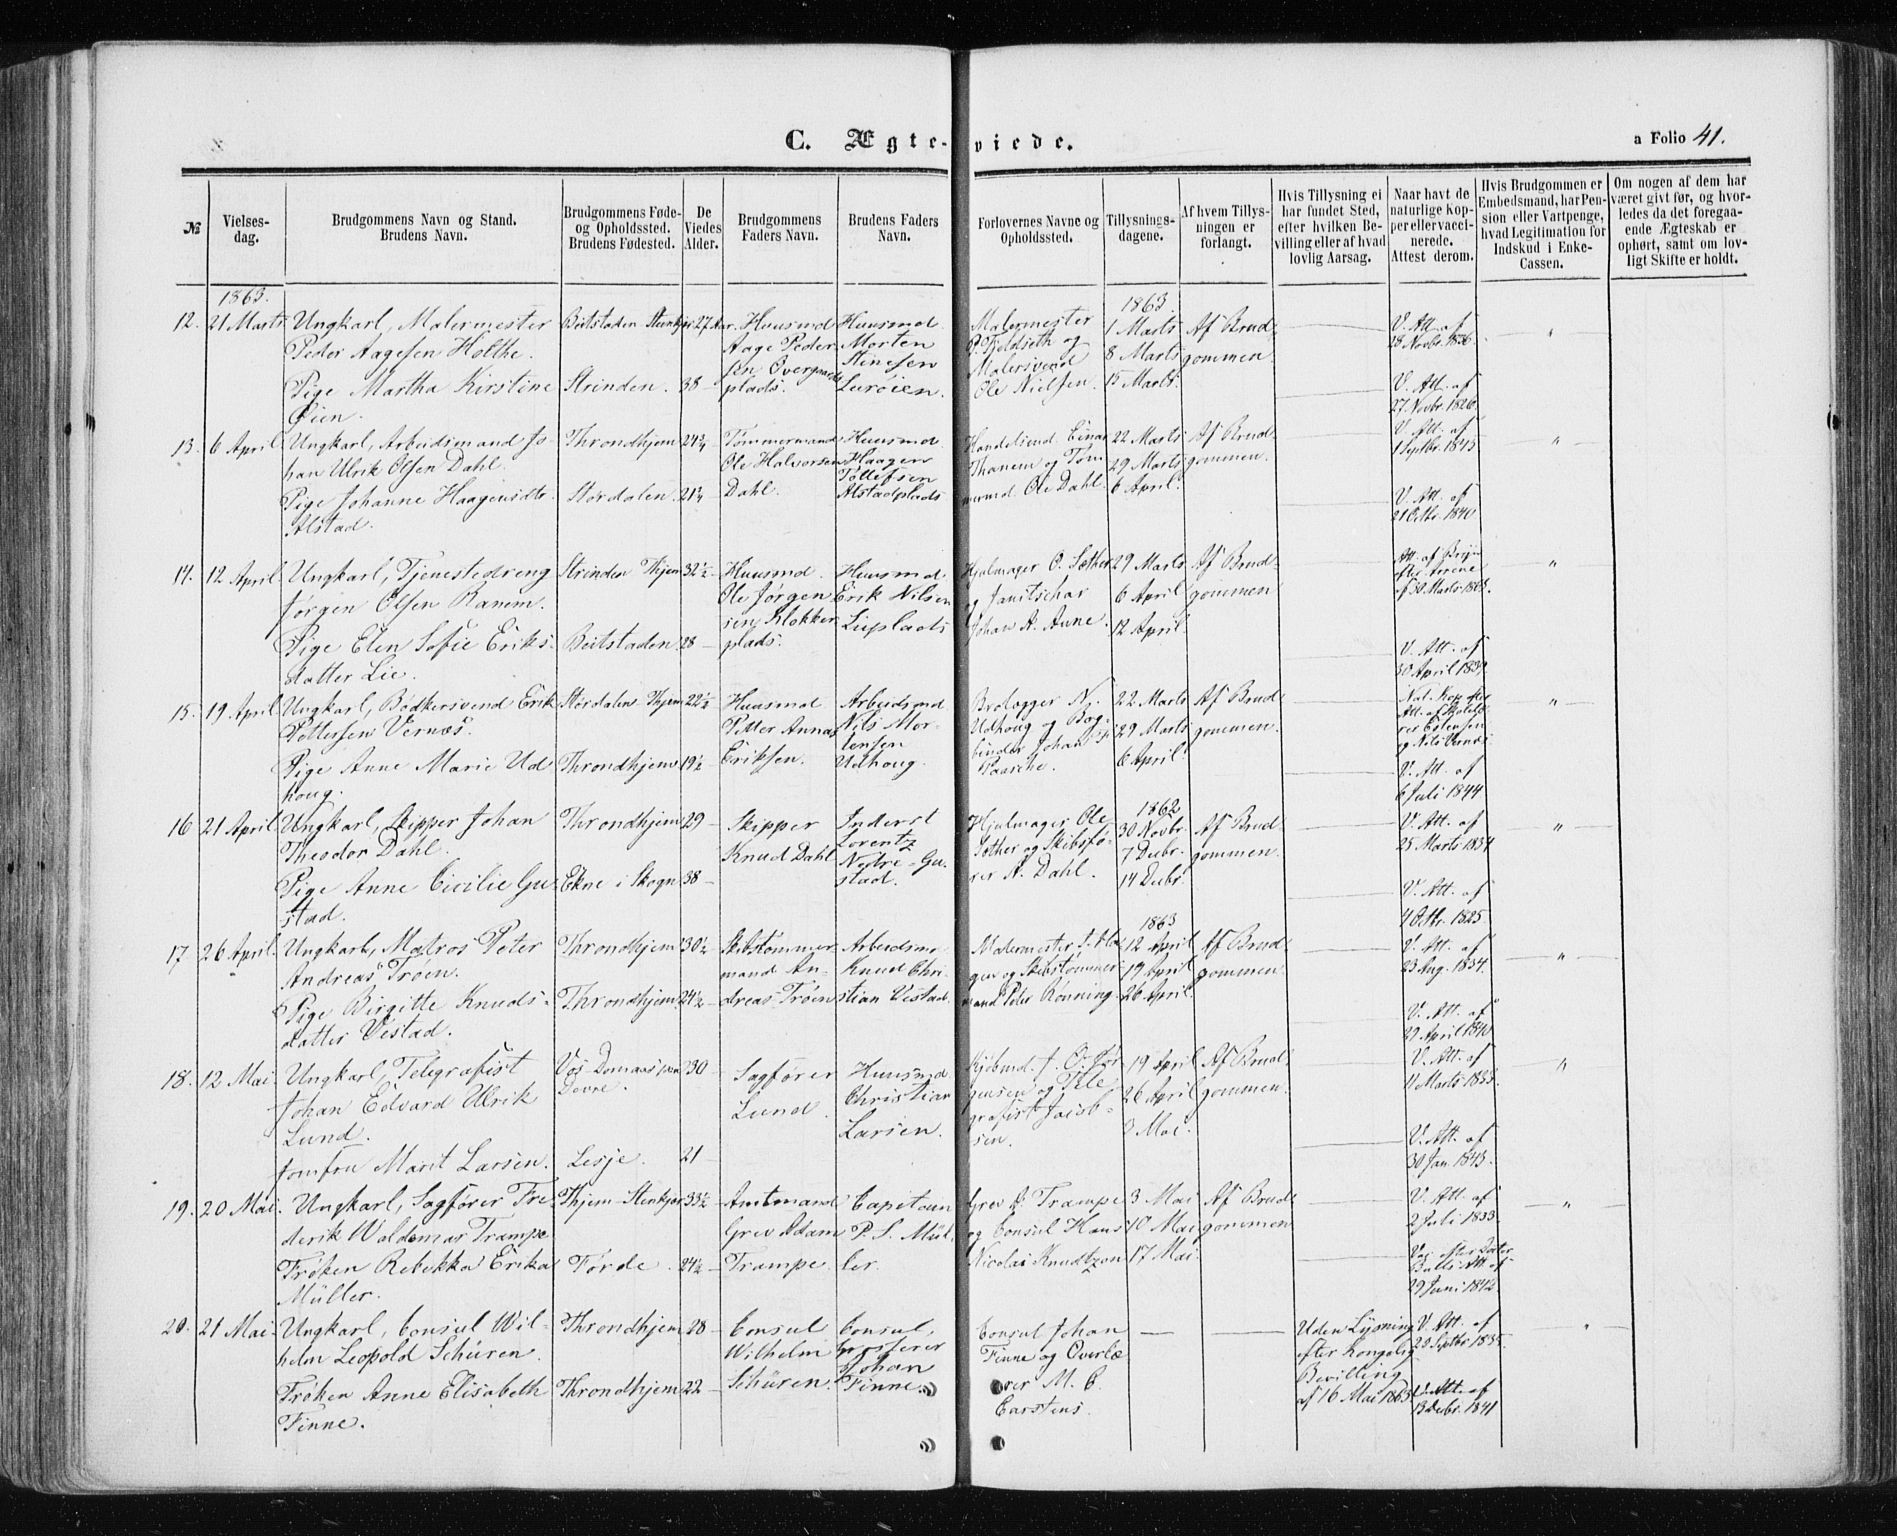 C. Ægteviede.
a Folio 41.
№
Vielsesdag.
Brudgommens Navn og Stand.
Brudens Navn.
Brudgommens Føde- og Opholdssted.
Brudens Fødested.
De Viedes Alder.
Brudgommens Faders Navn.
Brudens Faders Navn.
Forlovernes Navne og Opholdssted.
Tillysningsdagene.
Af hvem Tillysningen er forlangt.
Hvis Tillysning ei har fundet Sted, efter hvilken Bevilling eller af hvad lovlig Aarsag.
Naar havt de naturlige Kopper eller vaccinerede. Attest derom.
Hvis Brudgommen er Embedsmand, har Pension eller Vartpenge, hvad Legitimation for Indskud i Enke-Cassen.
Om nogen af dem har været givt før, og hvorledes da det foregaaende Ægteskab er ophørt, samt om lovligt Skifte er holdt.
1863.
12. 21 Marts
Ungkarl, Malermester
Peder Aagesen Holthe.
Pige Martha Kirstine
Øien.
Beitstaden Steenkjer 27 Aar.
Strinden. 38
Huusmd
Aage Peder-
sen
plads.
Huusmd
Morten
Stenesen
Lurøien.
Malermester
P. Kjeldseth og
Malersvend
Ole Nielsen.
1863
1 Marts
8 Marts
15 Marts.
Af Brud-
gommen.
V. Att. af
28 Novbr. 1836.
V. Att. af
27 Novbr. 1826.
13. 6 April
Ungkarl, Arbeidsmand Jo-
han Ulrik Olsen Dahl.
Pige Johanne Haagensdtr.
Alstad.
Throndhjem 24¾
Størdalen. 21¼
Tømmermand
Ole Halvorsen
Dahl.
Huusmd
Haagen
Tollefsen
Alstadplads
Handelsmd. Einar
Thanem og Tøm-
mermd. Ole Dahl.
22 Marts
29 Marts
6 April.
Af Brud-
gommen.
V. Att. af
1 Septbr. 1843
V. Att. af
21 Octbr. 1840
14. 12 April
Ungkarl, Tjenestedreng
Jørgen Olsen Ranem.
Pige Elen Sofie Eriks-
datter Lie.
Strinden Thjem 32½
Beitstaden 28
Huusmd.
Ole Jørgen
sen Klokker
plads.
Huusmd.
Erik Nilsen
Lieplads
Hjulmager O. Sæther
og Janitschar
Johan A. Aune.
29 Marts
6 April
12 April.
Af Brud-
gommen
af 30 Marts 1863.
V. Att. af
30 April 1839
15. 19 April
Ungkarl, Bødkersvend Erik
Pettersen Vernæs.
Pige Anne Marie Ud
houg.
Størdalen Thjem 22½
Throndhjem 19½
Huusmd
Petter Annas
Eriksen.
Arbeidsmd
Nils Mor-
tensen
Udhoug.
Brolægger N.
Udhoug og Bog-
binder Johan
Paasche.
22 Marts
29 Marts
6 April.
Af Brud-
gommen.
Nat. Kop. efter
Att. af
og Nils Vernæs
V. Att. af
6 Juli 1844
16 21 April
Ungkarl, Skipper Johan
Theodor Dahl.
Pige Anne Cicilie Gu-
stad.
Throndhjem 29
Ekne i Skogn 38
Skipper
Knud Dahl
Inderst
Lorentz
Nedre-Gu-
stad.
Hjulmager Ole
Sæther og Skibsfø-
rer A. Dahl.
1862
30 Novbr.
7 Decbr.
14 Decbr.
Af Brud-
gommen.
V. Att. af
25 Marts 1834
V. Att. af
4 Octbr. 1825
17 26 April
Ungkarl, Matros Peter
Andreas Trøen.
Pige Birgitte Knuds-
datter Vestad.
Throndhjem 30½
Throndhjem. 24½
Skibstømmer
mand An-
dreas Trøen
Arbeidsm.
Knud Chri-
stian Vestad.
Malermester
gen og Skibstømmer-
mand Peter Rønning.
1863
12 April
19 April
26 April.
Af Brud-
gommen.
V. Att. af
23 Aug. 1834.
V. Att. af
29 April 1840
18. 12 Mai
Ungkarl, Telegrafist
Johan Edvard Ulrik
Lund.
Jomfru Marit Larsen.
Vos Domaas paa
Dovre. 30
Lesje. 21
Sagfører
Lund.
Huusmd
Christian
Larsen.
Kjøbmd. J. O. Jør-
gensen og Tele-
grafist Jacob-
sen.
19 April
26 April
3 Mai.
Af Brud-
gommen.
V. Att. af
11 Marts 1833.
V. Att. af
30 Jan. 1843.
19. 20 Mai.
Ungkarl, Sagfører Fre-
derik Waldemar Trampe
Frøken Rebekka Erika
Müller.
Thjem - Stenkjær 33½
Førde. 24½
Amtmand
Grev Adam
Trampe.
Capitain
P. S. Mül-
ler.
Grev A. Trampe
og Consul Hans
Nicolai Knudtzon
3 Mai
10 Mai
17 Mai.
Af Brud-
gommen
V. Att. af
2 Juli 1833.
Vac. efter Doctor
Balls Att. af
29 Juni 1842
20. 21 Mai.
Ungkarl, Consul Wil-
helm Leopold Schüren.
Frøken Anne Elisabeth
Finne.
Throndhjem 28
Throndhjem 22
Consul
Wilhelm
Schüren.
Consul,
Grosserer
Johan
Finne.
Consul Johan
Finne og Overlæ-
rer M. C.
Carstens.
Uden Lysning
efter Kongelig
Bevilling
af 16 Mai 1863.
V. Att. af
29 Septbr. 1835.
V. Att. af
13 Decbr. 1841